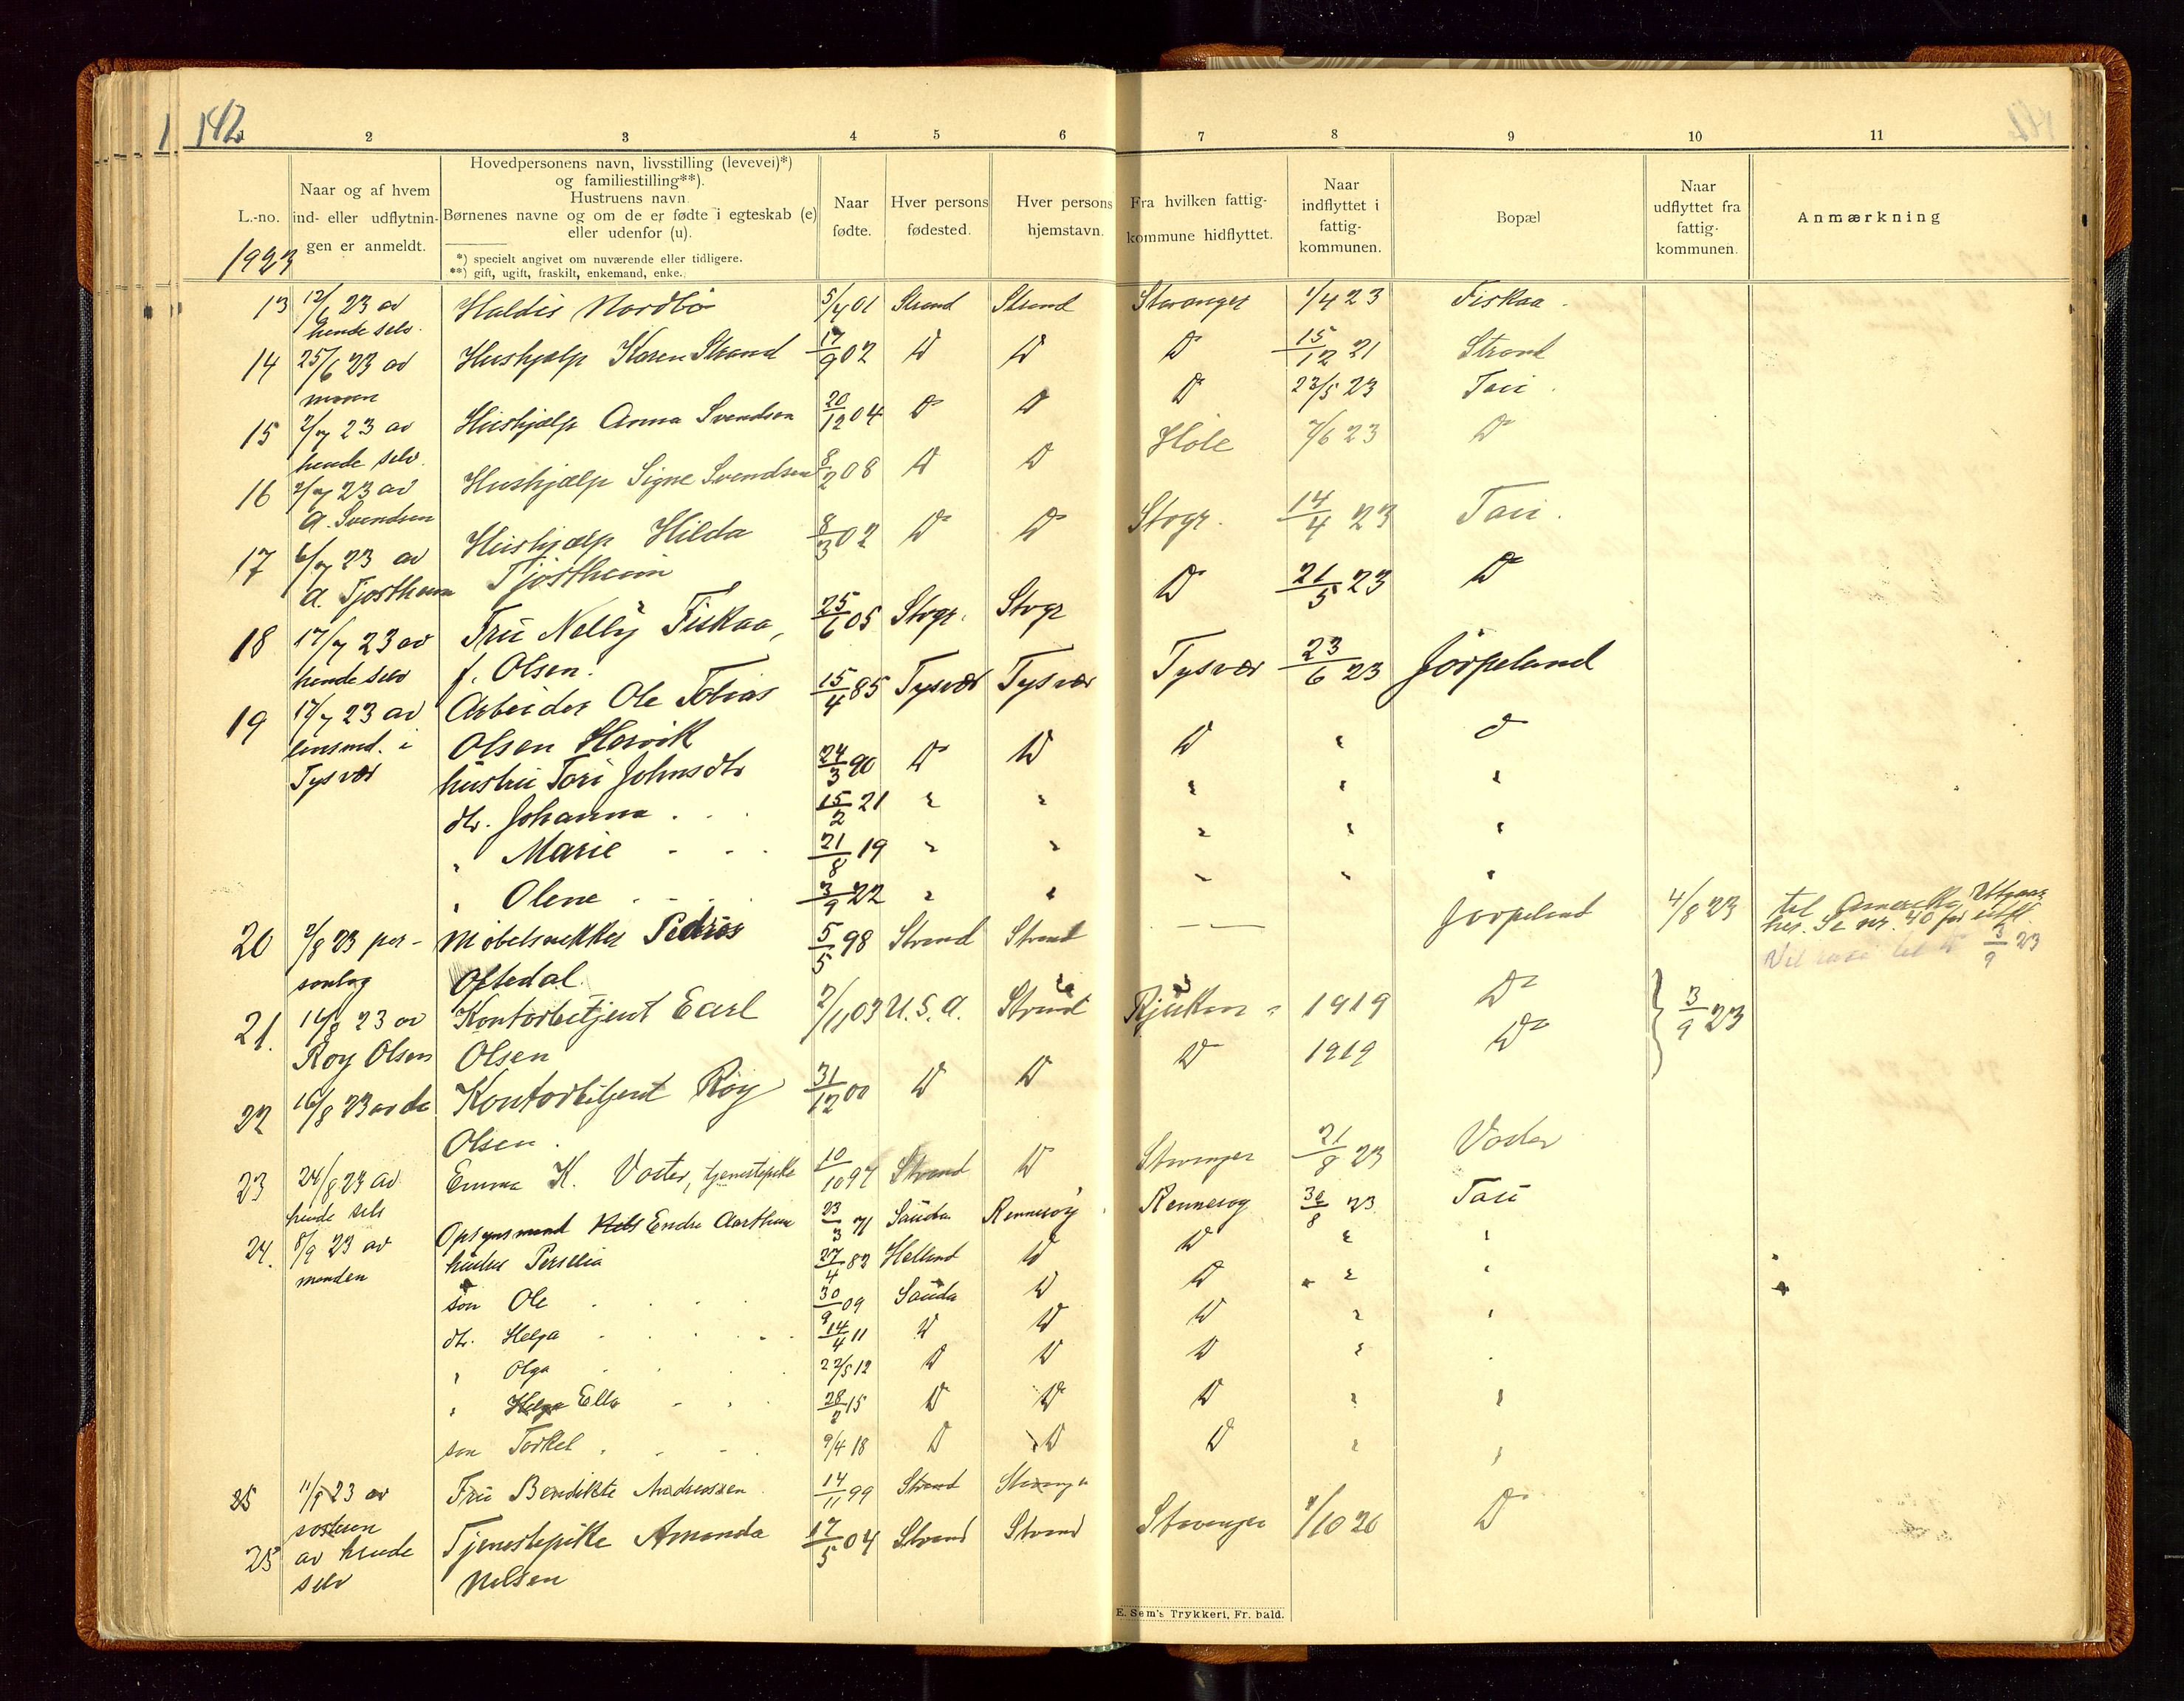 142
1 2 3 4 5 6 7 8 9 10 11
L.-no.
1923
Naar og af hvem
ind- eller udflytnin-
gen er anmeldt.
Hovedpersonens navn, livsstilling (levevei)*)
og familiestilling**).
Hustruens navn.
Børnenes navne og om de er fødte i egteskab (e)
eller udenfor (u).
*) specielt angivet om nuværende eller tidligere.
**) gift, ugift, fraskilt, enkemand, enke.
Naar
fødte.
Hver persons
fødested.
Hver persons
hjemstavn.
Fra hvilken fattig-
kommune hidflyttet.
Naar
indflyttet i
fattig-
kommunen.
Bopæl
Naar
udflyttet fra
fattig-
kommunen.
Anmærkning
13 12/6 23 av Haldis Nordbö 5/4 01 Strand Strand Stavanger 1/4 23 Fiskaa
hende selv.
14 25/6 23 av Hushjælp Karen Strand 17/9 02 D D D 15/12 21 Strand
moren
15 2/7 23 av Hushjælp Anna Svendsen 20/12 04 D D D 23/5 23 Tau
hende selv.
16 2/7 23 av Hushjælp Signe Svendsen 8/2 08 D D Höle 7/6 23 D
A. Svendsen
17 6/7 23 av Hushjælp Hilda 8/3 02 D D Stvgr. 14/4 23 Tau.
A. Tjostheim Tjostheim
18 17/7 23 av Fru Nelly Fiskaa, 25/6 05 Stvgr. Stvgr D 21/5 23 D
hende selv f. Olsen.
19 17/7 23 av Arbeider Ole Tobias 15/4 85 Tysvær Tysvær Tysvær 23/6 23 Jörpeland
lensmd. i Olsen Hervik
Tysvær hustru Tori Johnsdtr 24/3 90 D D D " D
dtr. Johanna . . 15/2 21 " " " " "
" Marie - - . 21/8 19 " " " " "
" Olene . - . 3/9 22 " " " " "
20 2/8 23 per- Möbelsnekker Pedros 5/5 98 Strand Strand — Jörpeland 4/8 23 til Amerika
sonlig Oftedal.
her. Se nr. 40 for utfl.
3/9 23
21. 16/8 23 av Kontorbetjent Earl 2/11 03 U.S.A. Strand Rjukan 1919 D 3/9 23
Roy Olsen Olsen
22 16/8 23 av do Kontorbetjent Roy 31/12 00 D D D 1919 D
Olsen.
23 24/8 23 av Emma K. Voster, tjenestepike 10/10 97 Strand D Stavanger 21/8 23 Voster
hende selv
24. 8/9 23 av Opsynsmand Nils Endre Aarthun 23/3 71 Sauda Rennesöy Rennesöy 30/8 23 Tau
manden hustru 27/4 82 Helland D D " "
sön Ole . . . 30/9 09 Sauda D D " "
dtr. Helga . . . 14/4 11 D D D " "
" Olga . . . 22/5 12 D D D " .
" Helga Ella - . 28/8 15 D D D " "
sön Torkel . . - . 9/4 18 D D D " "
25 11/9 23 av Fru Bendikte Andreassen 14/11 99 Strand Stavanger
søsteren
25 av hende Tjenestepike Amanda 17/5 04 Strand Strand Stavanger 1/10 20 D
selv Nelsen
E. Sem's Trykkeri, Fr. hald.